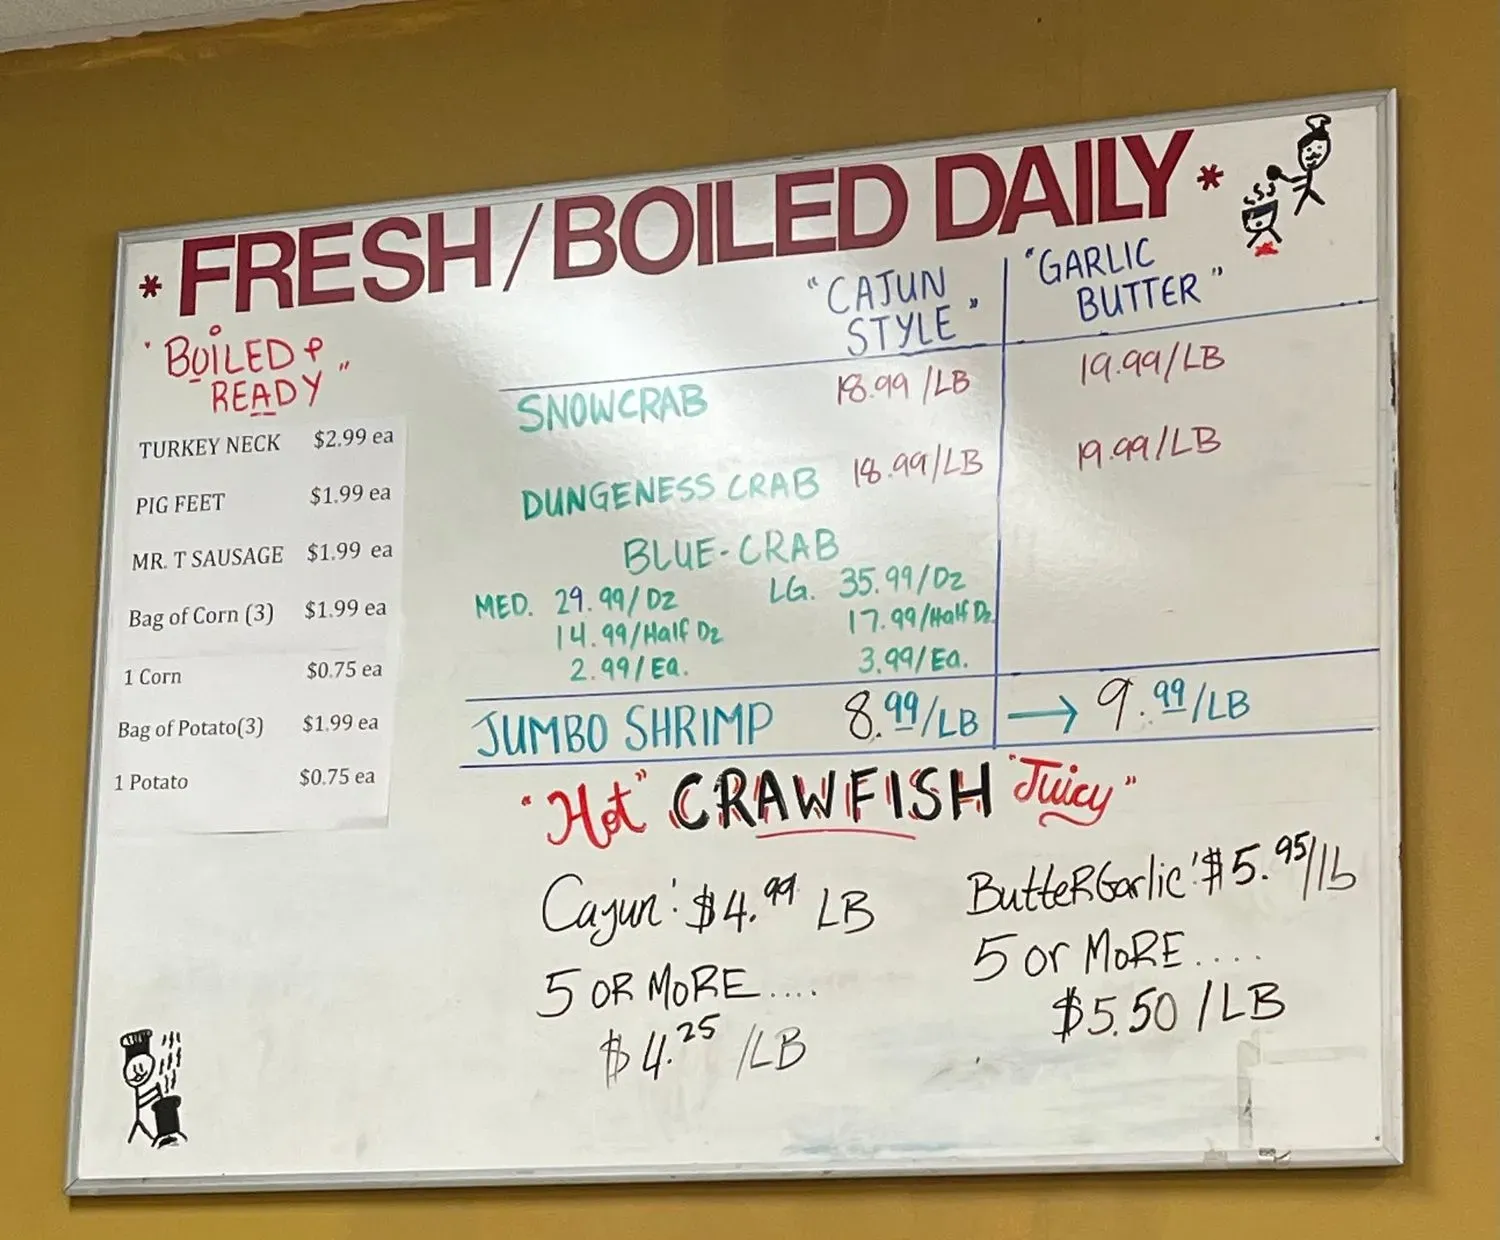 * FRESH/BOILED DAILY *
"BOILED &
READY"
TURKEY NECK $2.99 ea
PIG FEET $1.99 ea
MR. T SAUSAGE $1.99 ea
Bag of Corn (3) $1.99 ea
1 Corn $0.75 ea
Bag of Potato(3) $1.99 ea
1 Potato $0.75 ea
"CAJUN
STYLE"
"GARLIC
BUTTER"
SNOWCRAB 18.99/LB 19.99/LB
DUNGENESS CRAB 18.99/LB 19.99/LB
BLUE-CRAB
MED. 29.99/Dz LG. 35.99/Dz
14.99/Half Dz 17.99/Half Dz
2.99/Ea. 3.99/Ea.
JUMBO SHRIMP 8.99/LB → 9.99/LB
"Hot" CRAWFISH "Juicy"
Cajun: $4.99 LB
5 OR MORE....
$4.25 /LB
ButteRGarlic: $5.95/lb
5 or MoRE....
$5.50 /LB